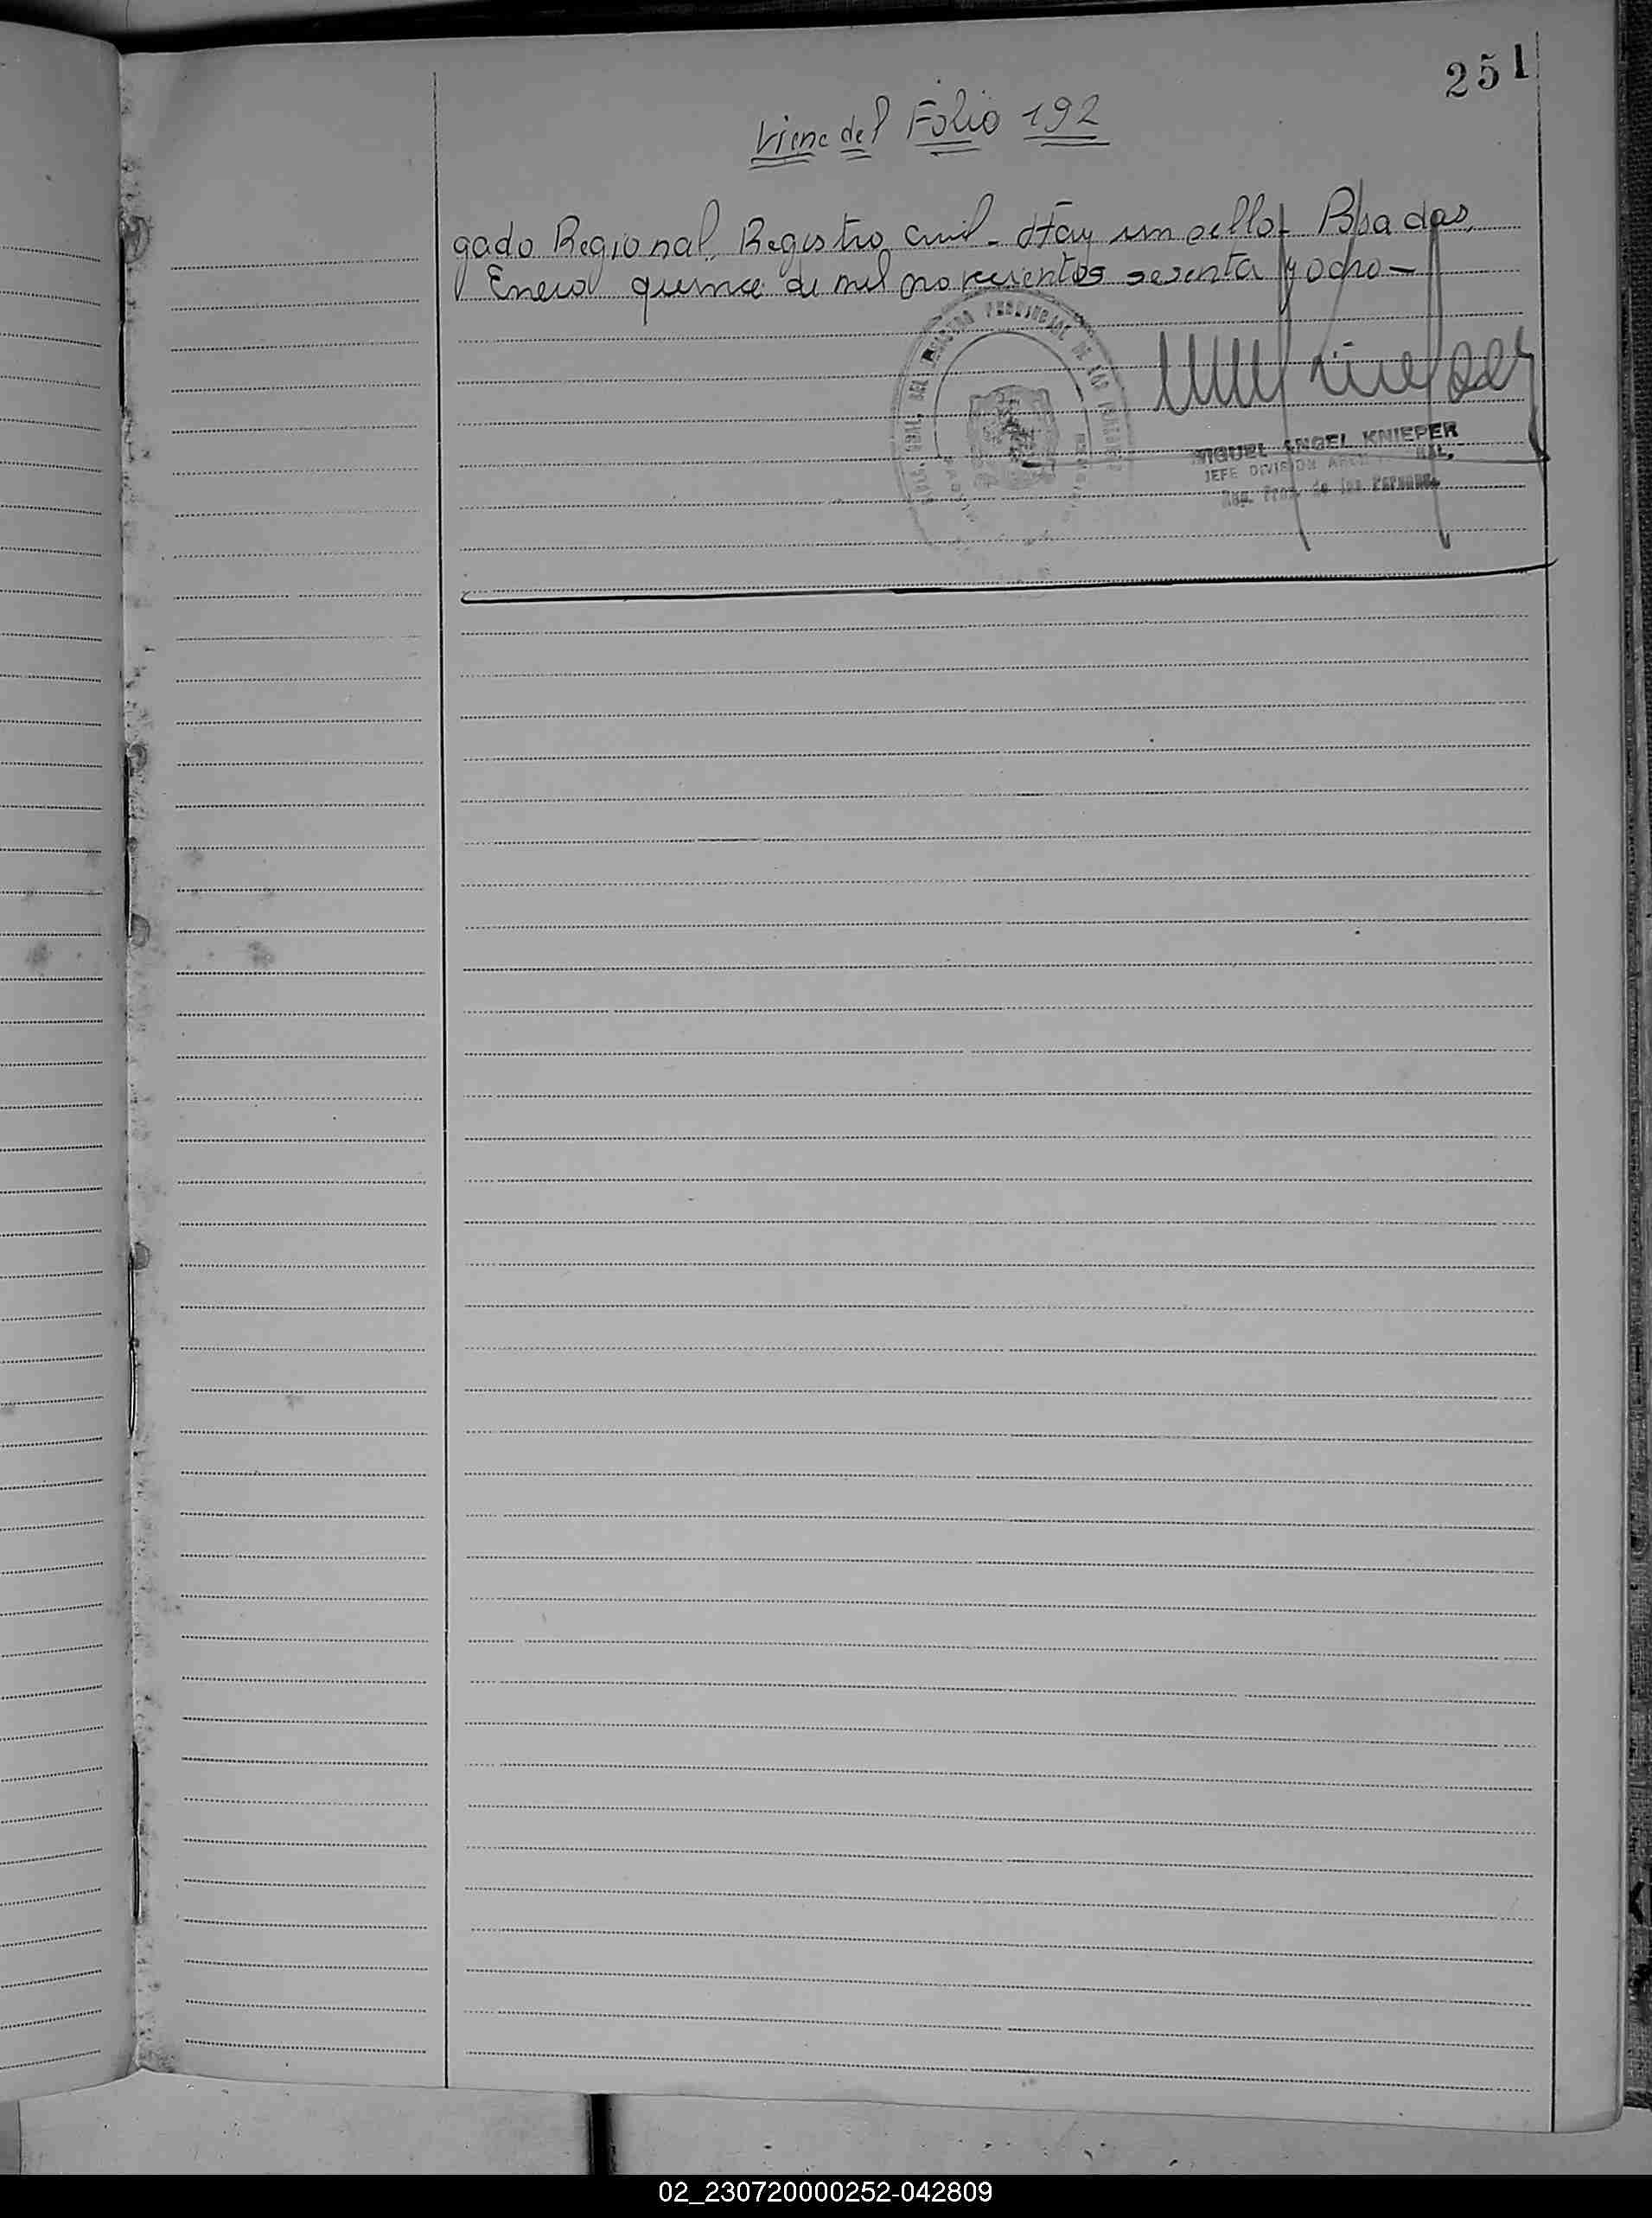 251
Viene del Folio 192
gado Regional. Registro Civil - Hay un sello - Posadas,
Enero quince de mil novecientos sesenta y ocho -
REGISTRO PROVINCIAL DE LAS PERSONAS
MIGUEL ANGEL KNIEPER
JEFE DIVISION
Reg. Prov. de las Personas
02_230720000252-042809